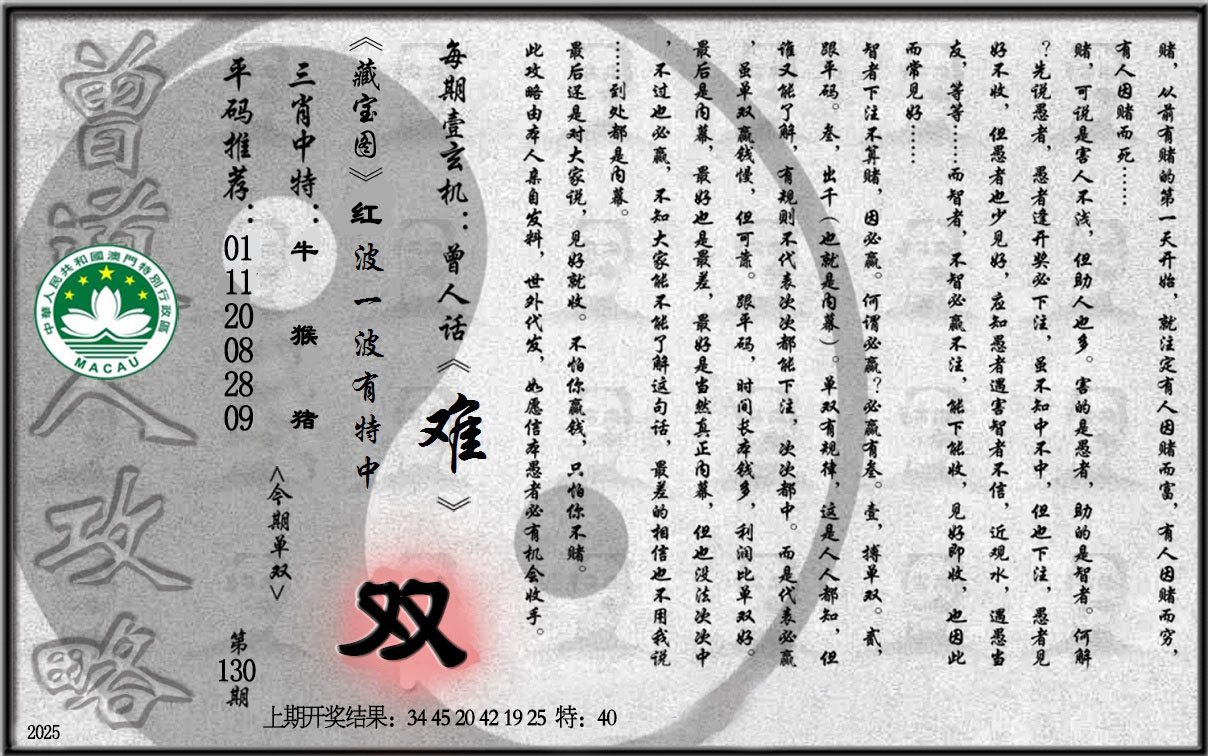 赌，从前有赌的第一天开始，就注定有人因赌而富，有人因赌而穷，
有人因赌而死……
赌，可说是害人不浅，但助人也多。害的是愚者，助的是智者。何解
？先说愚者，愚者逢开奖必下注，虽不知中不中，但也下注，愚者见
好不收，但愚者也少见好，应知愚者遇害智者不信，近观水，遇愚当
友，等等……而智者，不智必赢不注，能下能收，见好即收，也因此
而常见好……
智者下注不算赌，因必赢。何谓必赢？必赢有叁。壹，搏单双。贰，
跟平码。叁，出千（也就是内幕）。单双有规律，这是人人都知，但
谁又能了解，有规则不代表次次都能下注，次次都中。而是代表必赢
，虽单双赢钱慢，但可靠。跟平码，时间长本钱多，利润比单双好。
最后是内幕，最好也是最差，最好是当然真正内幕，但也没法次次中
，不过也必赢，不知大家能不能了解这句话，最差的相信也不用我说
……到处都是内幕。
最后还是对大家说，见好就收。不怕你赢钱，只怕你不赌。
此攻略由本人亲自发料，世外代发，如愿信本愚者必有机会收手。
每期壹玄机：曾人话《难》
《藏宝图》红波一波有特中
双
三肖中特：牛猴猪
<今期单双>
平码推荐：
01
11
20
08
28
09
第
130
期
曾道人攻略
中華人民共和國澳門特別行政區
MACAU
上期开奖结果：34 45 20 42 19 25 特：40
2025